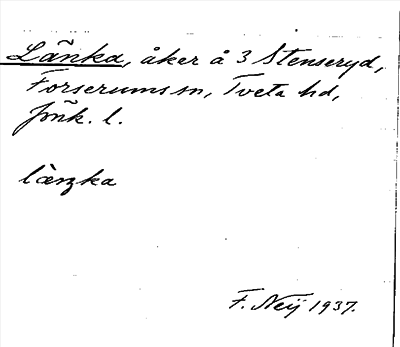 Länka, åker å 3 Stenseryd,
Forserums sn, Tveta hd,
Jönk. l.
F. Neij 1937.